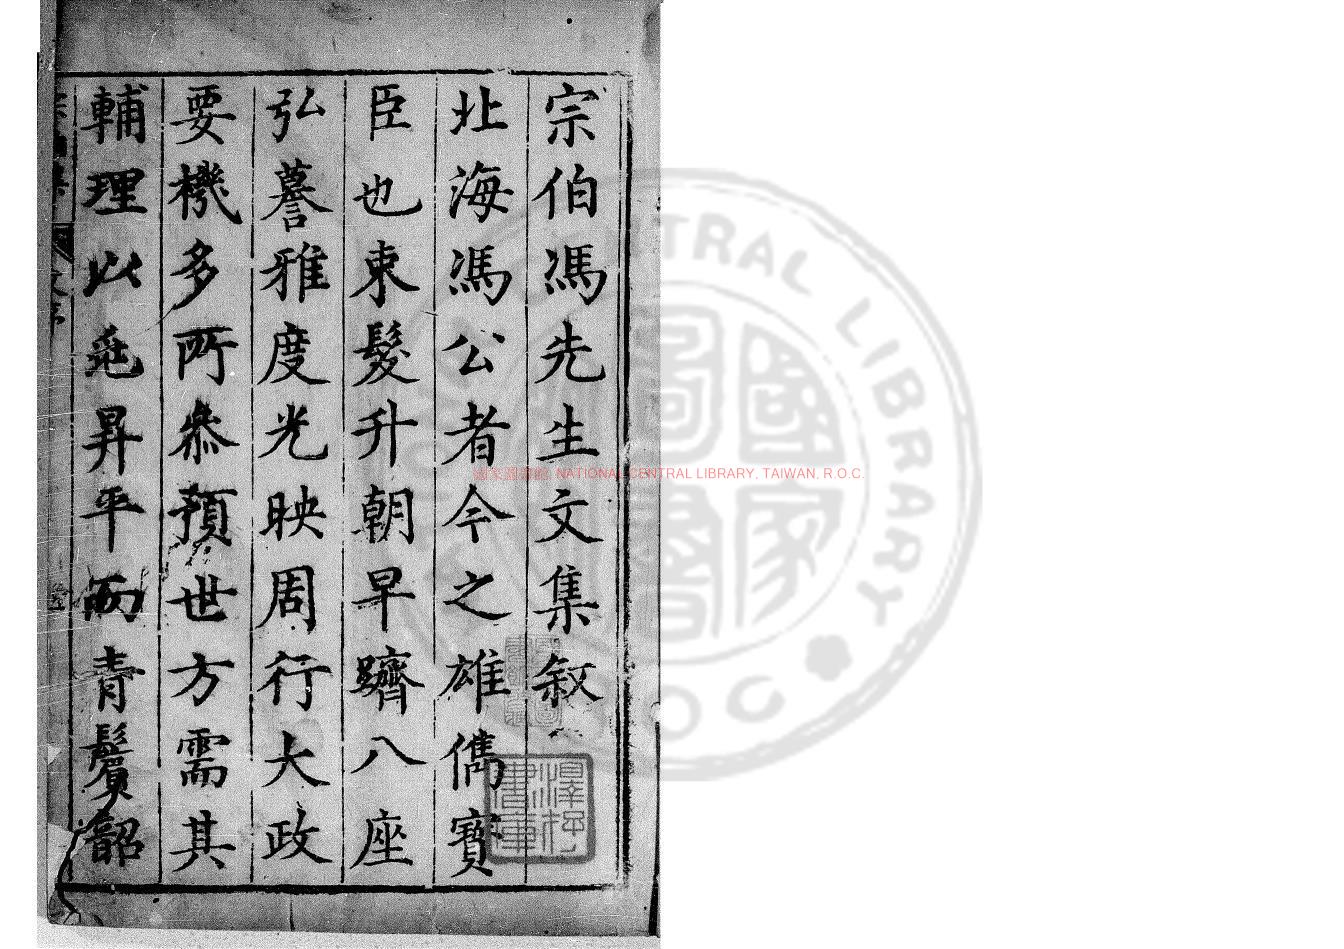 宗伯馮先生文集叙
北海馮公者今之雄儁寳
臣也束髮升朝早躋八座
弘謩雅度光映周行大政
要機多所叅預世方需其
輔理以㘴昇平而青鬢韶
國家圖書館, NATIONAL CENTRAL LIBRARY, TAIWAN, R.O.C.